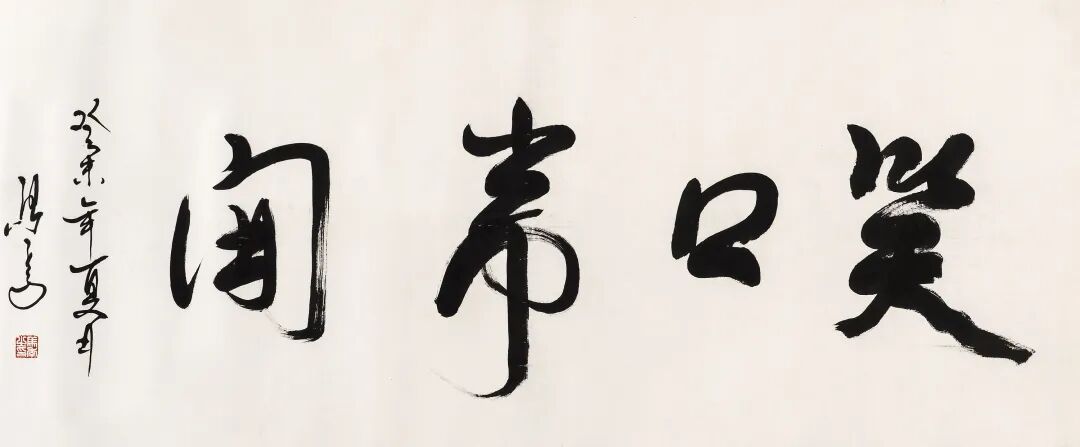 笑口常開
癸未年夏月